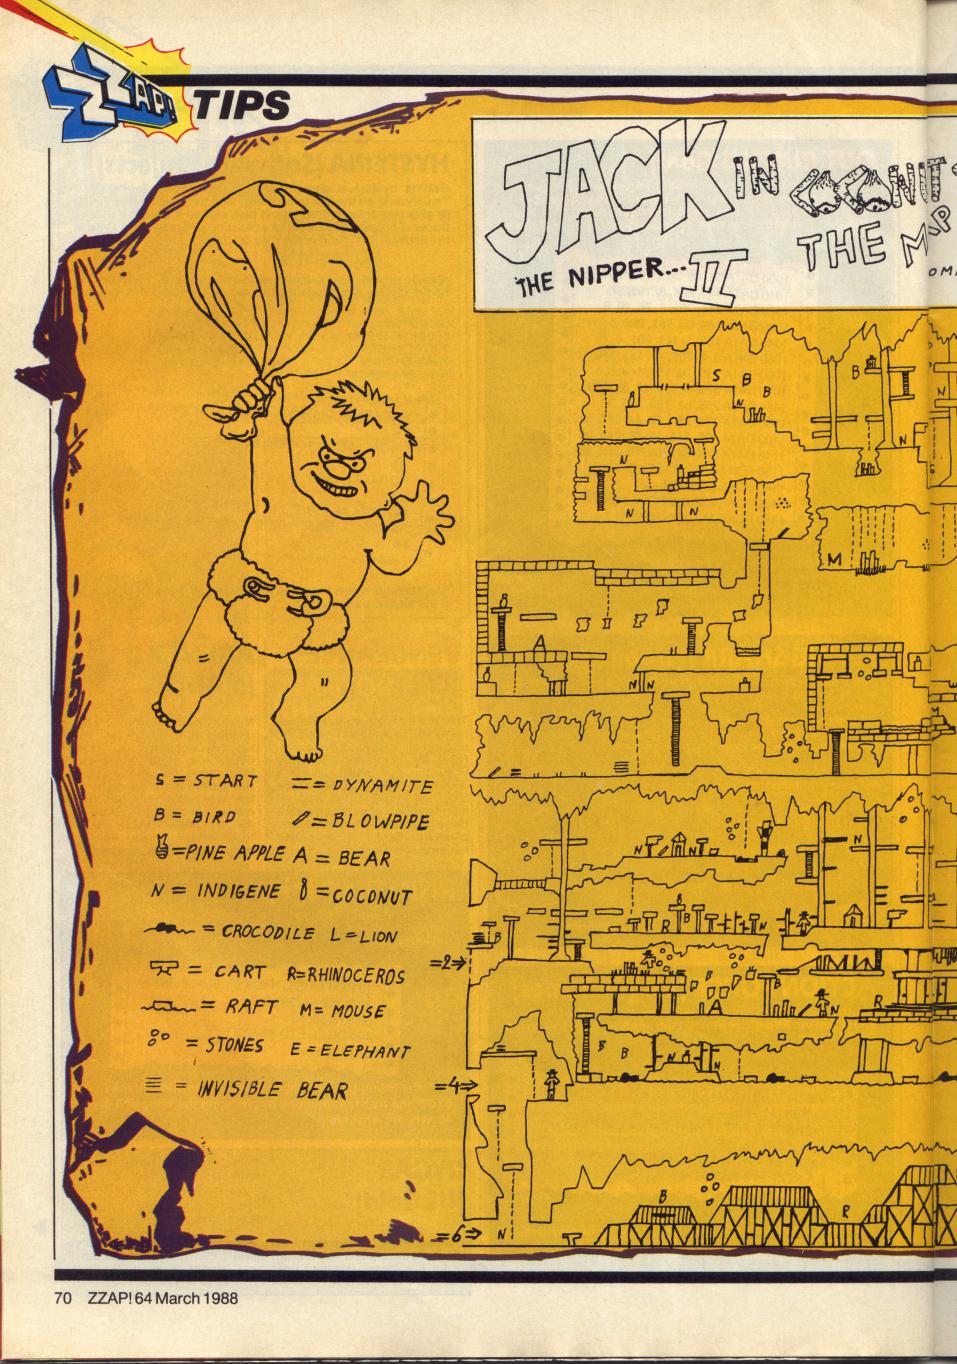 ZZAP! TIPS
JACK IN COCONUT
THE NIPPER... II THE MAP
S = START = DYNAMITE
B = BIRD = BLOWPIPE
=PINE APPLE A = BEAR
N = INDIGENE =COCONUT
= CROCODILE L=LION
= CART R=RHINOCEROS
= RAFT M= MOUSE
= STONES E=ELEPHANT
= INVISIBLE BEAR
S B
B
B
N
N
N
N N
M
A
N N
M
D
N N
N
B
R B
N
B
=2⇒
B
B
A
N
R
B B
N
N
=4⇒
=6⇒ N
B
R
70 ZZAP! 64 March 1988